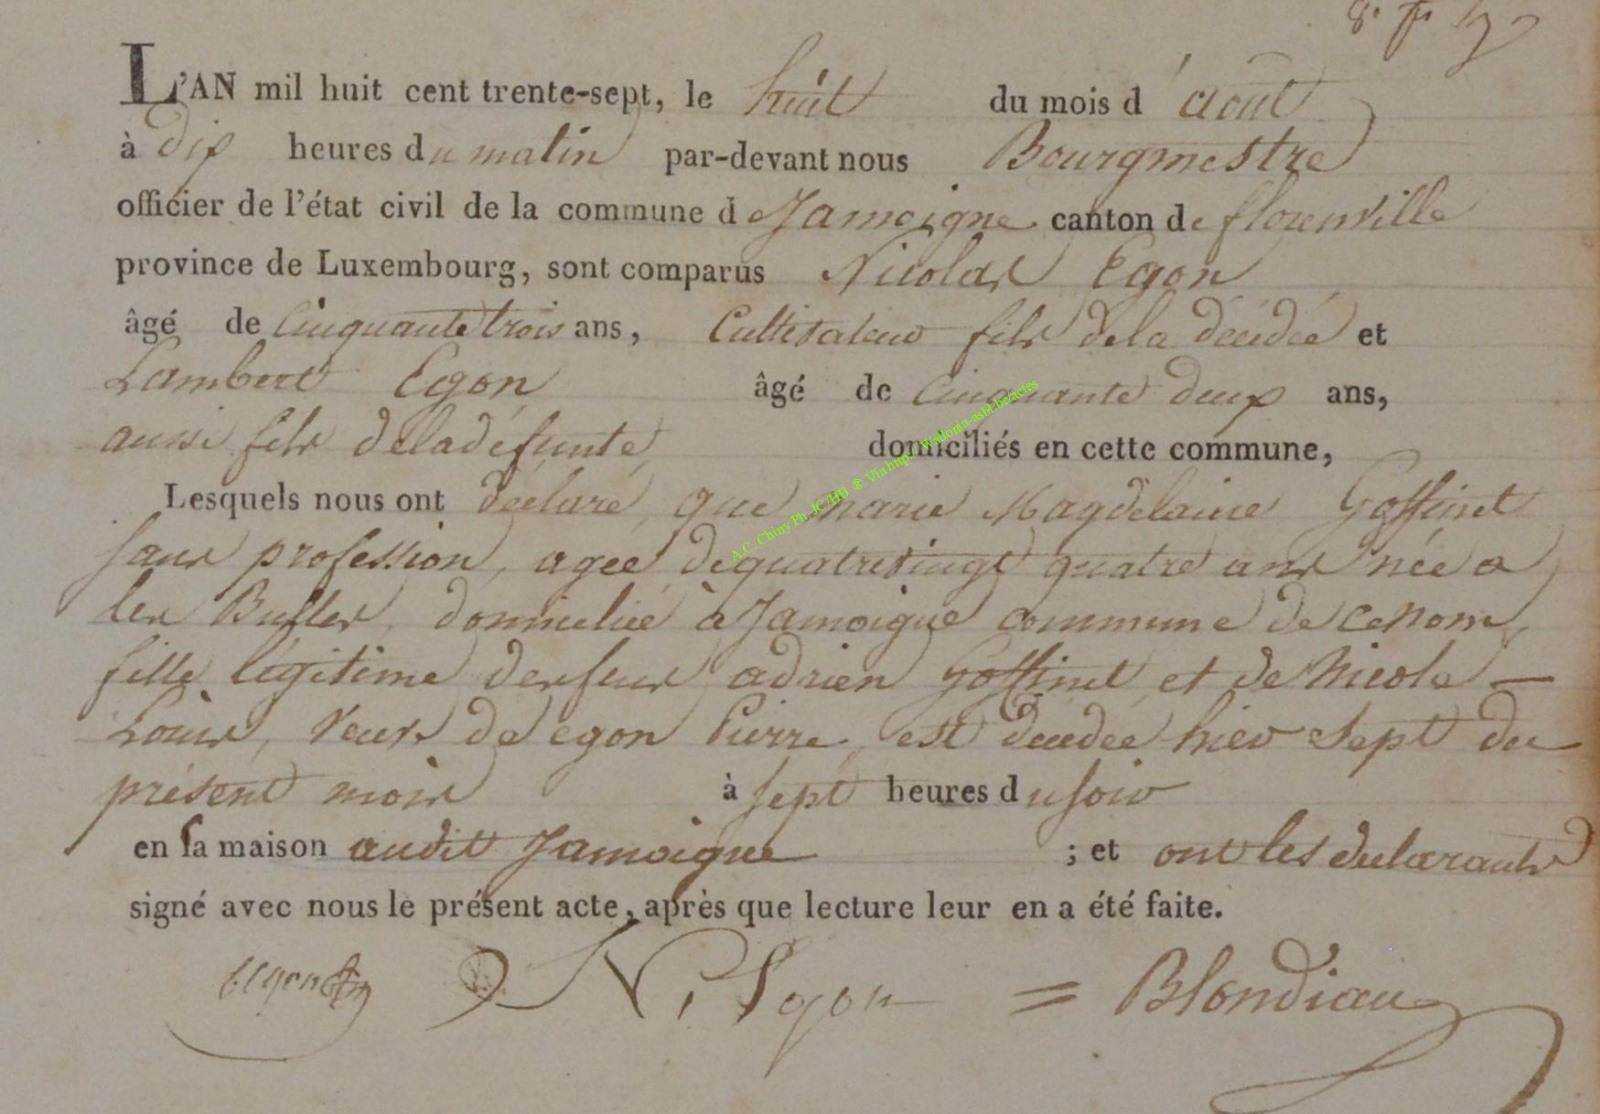 L'AN mil huit cent trente-sept, le huit du mois d'août
à dix heures du matin par-devant nous Bourgmestre
officier de l'état civil de la commune d Jamoigne canton de florenville
province de Luxembourg, sont comparus Nicolas Egon
âgé de Cinquante trois ans, Cultivateur fils de la décédée et
Lambert Egon âgé de cinquante deux ans,
aussi fils de la défunte domiciliés en cette commune,
Lesquels nous ont déclaré, que marie Magdelaine Goffinet
sans profession, agée de quatrevingt quatre ans née a
les Bulles, domiciliée à Jamoigne commune de ce nom,
fille légitime des feus adrien Goffinet et de Nicole —
Louis, veuve de egon Pierre, est décédée hier sept du
présent mois à sept heures du soir
en sa maison audit Jamoigne ; et ont les declarants
signé avec nous le présent acte, après que lecture leur en a été faite.
N. Egon = Blondiau
A.C. Chiny Ph. JC/HB ®